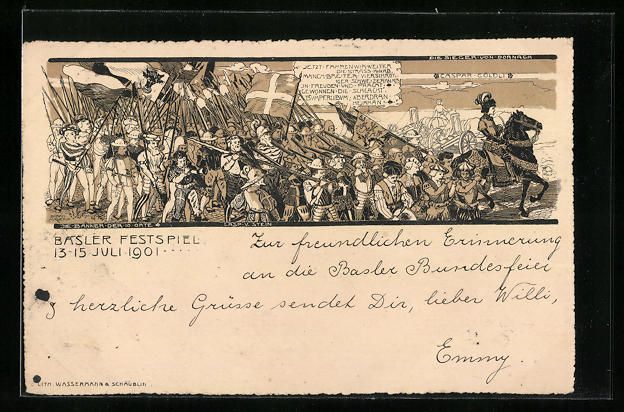 DIE SIEGER VON DORNACH
CASPAR GÖLDLI
JETZT FAHREN WIR WEITER
DIE BANNER DER 10 ORTE
CASP. V. STEIN
BASLER FESTSPIEL
13-15 JULI 1901
Zur freundlichen Erinnerung
an die Basler Bundesfeier
herzliche Grüsse sendet Dir, lieber Willi,
Emmy.
LITH. WASSERMANN & SCHÄUBLIN